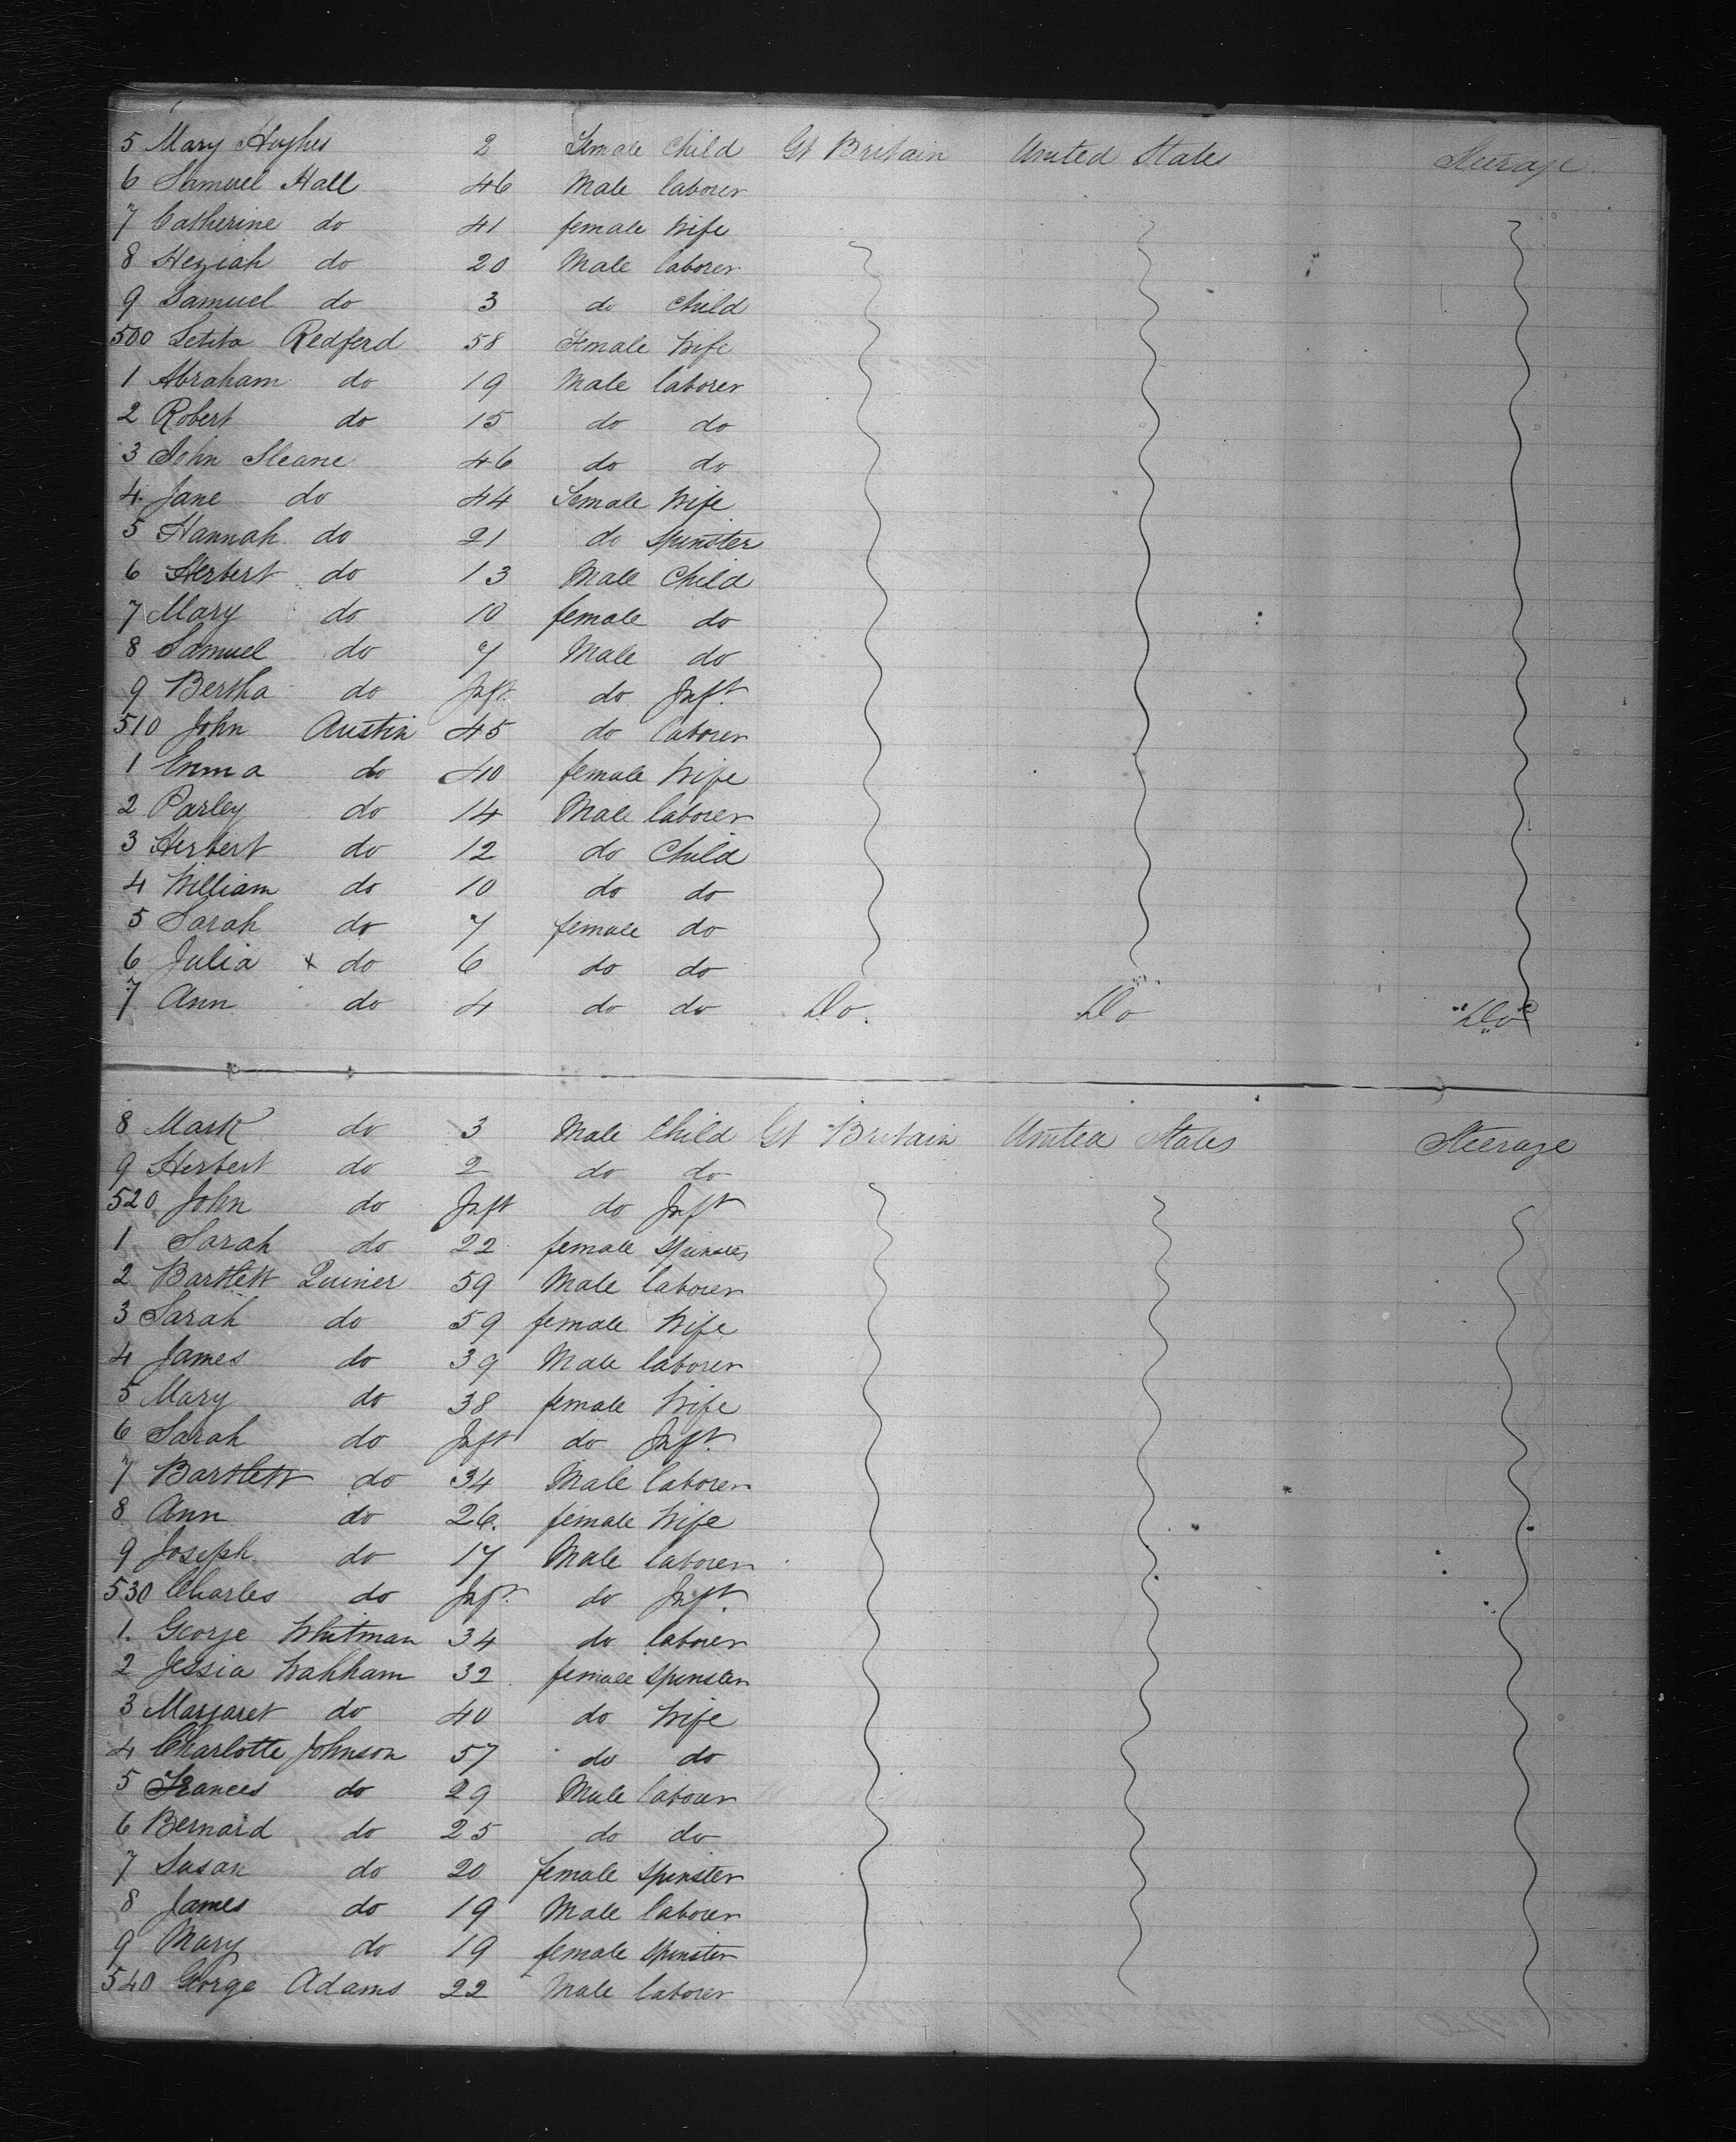 5 Mary Hughes 2 Female Child Gt Britain United States Steerage
6 Samuel Hall 46 Male laborer
7 Catherine do 41 female Wife
8 Heziah do 20 Male laborer
9 Samuel do 3 do Child
500 Letita Redferd 58 Female Wife
1 Abraham do 19 Male laborer
2 Robert do 15 do do
3 John Sleane 46 do do
4 Jane do 44 Female Wife
5 Hannah do 21 do Spinster
6 Herbert do 13 Male Child
7 Mary do 10 female do
8 Samuel do 7 Male do
9 Bertha do Inft. do Inft.
510 John Austin 45 do laborer
1 Emma do 40 female Wife
2 Parley do 14 Male laborer
3 Herbert do 12 do Child
4 William do 10 do do
5 Sarah do 7 female do
6 Julia x do 6 do do
7 Ann do 4 do do Do. Do Do
8 Mark do 3 Male Child Gt Britain United States Steerage
9 Herbert do 2 do do
520 John do Inft do Inft
1 Sarah do 22 female Spinster
2 Bartlett Quiner 59 Male laborer
3 Sarah do 59 female Wife
4 James do 39 Male laborer
5 Mary do 38 female Wife
6 Sarah do Inft do Inft.
7 Bartlett do 34 Male laborer
8 Ann do 26. female Wife
9 Joseph do 17 Male laborer
530 Charles do Inft. do Inft.
1. George Whitman 34 do laborer
2 Jessia Wahham 32 female Spinster
3 Margaret do 40 do Wife
4 Charlotte Johnson 57 do do
5 Frances do 29 Male laborer
6 Bernard do 25 do do
7 Susan do 20 female Spinster
8 James do 19 Male laborer
9 Mary do 19 female Spinster
540 George Adams 22 Male laborer